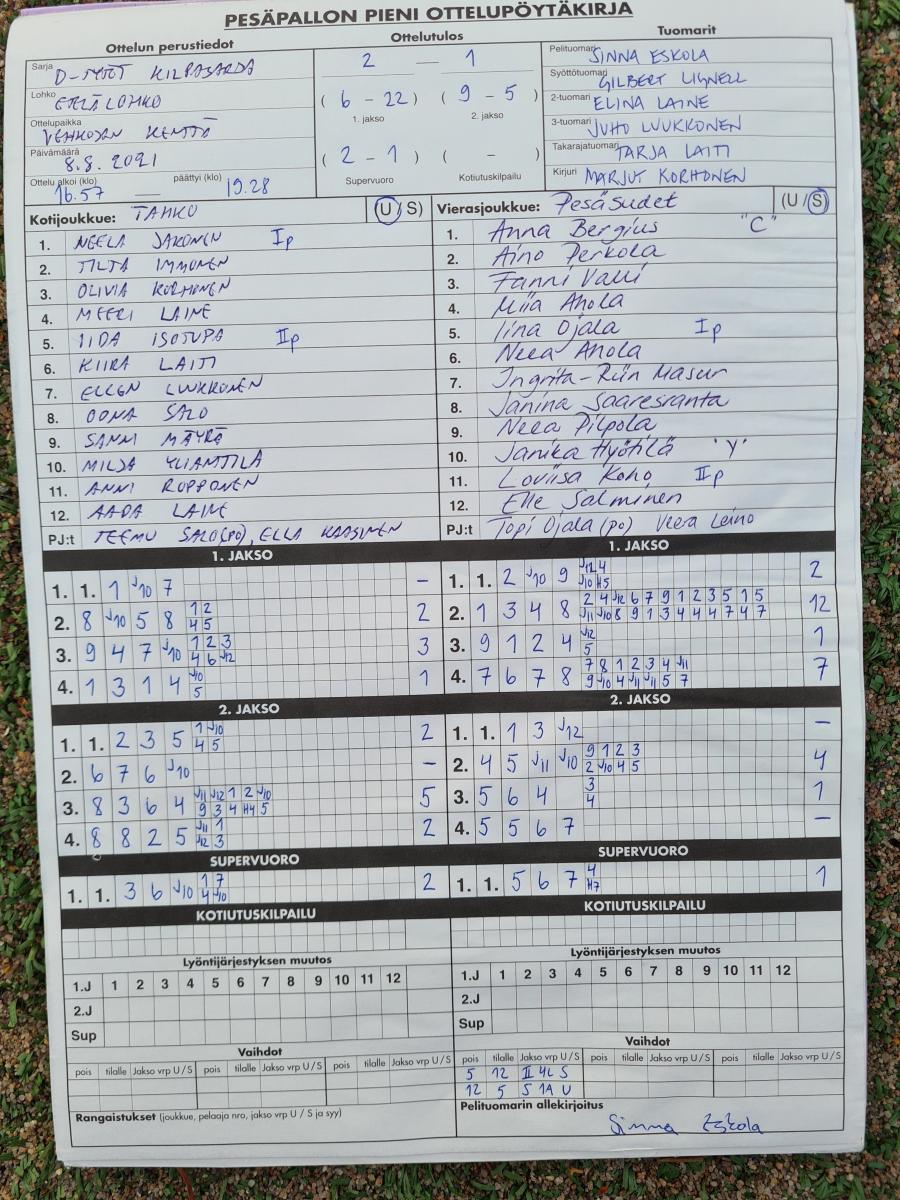 PESÄPALLON PIENI OTTELUPÖYTÄKIRJA
Ottelun perustiedot Ottelutulos Tuomarit
Sarja D-TYTÖT KILPASARJA
Lohko ETELÄLOHKO
Ottelupaikka VEHKOJAN KENTTÄ
Päivämäärä 8.8. 2021
Ottelu alkoi (klo) 16.57 — päättyi (klo) 19.28
2 — 1
( 6 - 22 ) ( 9 - 5 )
1. jakso 2. jakso
( 2 - 1 ) ( - )
Supervuoro Kotiutuskilpailu
Pelituomari SINNA ESKOLA
Syöttötuomari GILBERT LIGNELL
2-tuomari ELINA LAINE
3-tuomari JUHO LUUKKONEN
Takarajatuomari TARJA LAITI
Kirjuri MARJUT KORHONEN
Kotijoukkue: TAHKO (U / S)
1. NEELA JAKONEN Ip
2. TILTA IMMONEN
3. OLIVIA KORHONEN
4. MEERI LAINE
5. IIDA ISOTUPA IIp
6. KIIRA LAITI
7. ELLEN LUUKKONEN
8. OONA SALO
9. SANNI MÄYRÄ
10. MILJA YLIANTTILA
11. ANNI ROPPONEN
12. AADA LAINE
PJ:t TEEMU SALO(PJ), ELLA KAASINEN
Vierasjoukkue: Pesäsudet (U / S)
1. Anna Bergius "C"
2. Aino Perkola
3. Fanni Valli
4. Miia Ahola
5. Iina Ojala Ip
6. Neea Ahola
7. Ingrita-Riin Masur
8. Janina Saaresranta
9. Neea Pilpola
10. Janika Hyötilä 'Y'
11. Loviisa Koho IIp
12. Elle Salminen
PJ:t Topi Ojala (po) Veera Leino
1. JAKSO
1. 1. 1 J10 7 –
2. 8 J10 5 8 1 2 2
4 5
3. 9 4 7 J10 1 2 3 3
4 6 J12
4. 1 3 1 4 J10 1
5
1. JAKSO
1. 1. 2 J10 9 J12 4 2
J10 H5
2. 1 3 4 8 2 4 J12 6 7 9 1 2 3 5 1 5 12
J11 J10 8 9 1 3 4 4 4 7 4 7
3. 9 1 2 4 J12 1
5
4. 7 6 7 8 7 8 1 2 3 4 J11 7
9 J10 4 J11 J11 5 7
2. JAKSO
1. 1. 2 3 5 1 J10 2
4 5
2. 6 7 6 J10 –
3. 8 3 6 4 J11 J12 1 2 J10 5
9 3 4 H4 5
4. 8 8 2 5 J11 1 2
J12 3
2. JAKSO
1. 1. 1 3 J12 –
2. 4 5 J11 J10 9 1 2 3 4
2 J10 4 5
3. 5 6 4 3 1
4
4. 5 5 6 7 –
SUPERVUORO
1. 1. 3 6 J10 1 7 2
4 J10
SUPERVUORO
1. 1. 5 6 7 4 1
H7
KOTIUTUSKILPAILU
KOTIUTUSKILPAILU
Lyöntijärjestyksen muutos
1.J 1 2 3 4 5 6 7 8 9 10 11 12
2.J
Sup
Lyöntijärjestyksen muutos
1.J 1 2 3 4 5 6 7 8 9 10 11 12
2.J
Sup
Vaihdot
pois tilalle Jakso vrp U / S pois tilalle Jakso vrp U / S pois tilalle Jakso vrp U / S
Vaihdot
pois tilalle Jakso vrp U / S pois tilalle Jakso vrp U / S pois tilalle Jakso vrp U / S
5 12 II 4L S
12 5 S 1A U
Rangaistukset (joukkue, pelaaja nro, jakso vrp U / S ja syy)
Pelituomarin allekirjoitus
Sinna Eskola